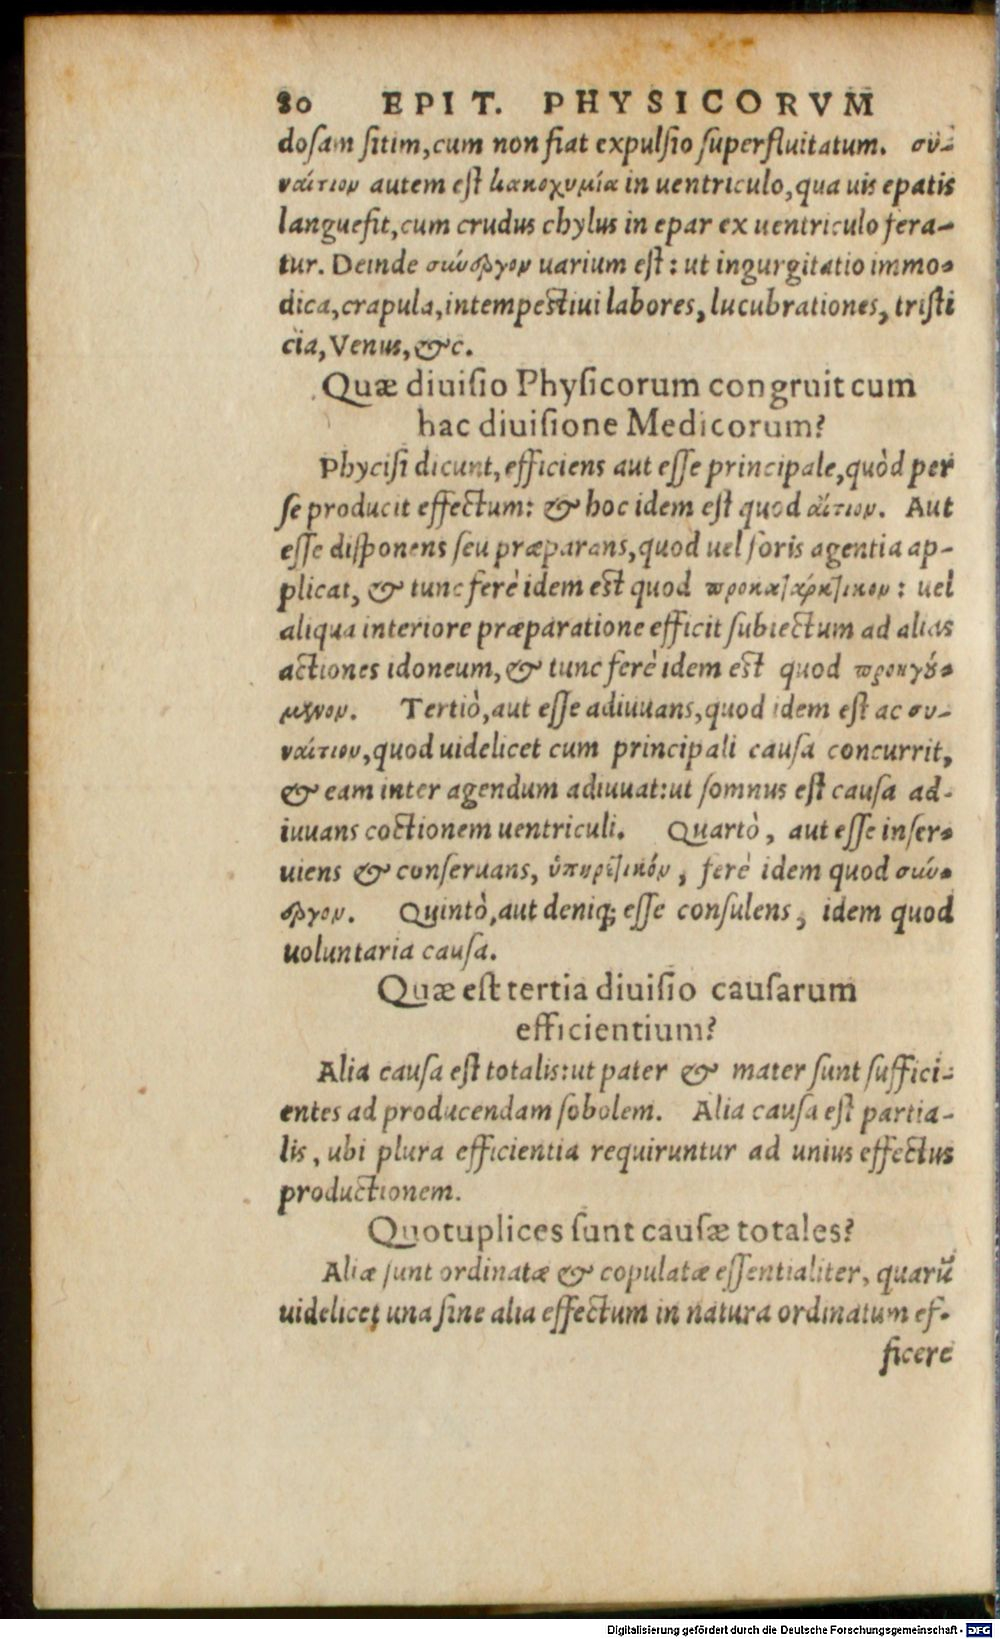 80 EPIT. PHYSICORVM
dosam sitim, cum non fiat expulsio superfluitatum. συ-
ναίτιον autem est κακοχυμία in uentriculo, qua uis epatis
languefit, cum crudus chylus in epar ex uentriculo fera-
tur. Deinde σώυεργον uarium est: ut ingurgitatio immo-
dica, crapula, intempestiui labores, lucubrationes, tristi
cia, Venus, &c.
Quæ diuisio Physicorum congruit cum
hac diuisione Medicorum?
Phycisi dicunt, efficiens aut esse principale, quòd per
se producit effectum: & hoc idem est quod αἴτιον. Aut
esse disponens seu præparans, quod uel foris agentia ap-
plicat, & tunc ferè idem est quod προκαταρκτικον: uel
aliqua interiore præparatione efficit subiectum ad alias
actiones idoneum, & tunc ferè idem est quod προηγού-
μενον. Tertiò, aut esse adiuuans, quod idem est ac συ-
ναίτιον, quod uidelicet cum principali causa concurrit,
& eam inter agendum adiuuat: ut somnus est causa ad-
iuuans coctionem uentriculi. Quartò, aut esse inser-
uiens & conseruans, ὑπηρετικόν, ferè idem quod σιώ-
εργον. Quintò, aut deniq; esse consulens, idem quod
uoluntaria causa.
Quæ est tertia diuisio causarum
efficientium?
Alia causa est totalis: ut pater & mater sunt suffici-
entes ad producendam sobolem. Alia causa est partia-
lis, ubi plura efficientia requiruntur ad unius effectus
productionem.
Quotuplices sunt causæ totales?
Aliæ sunt ordinatæ & copulatæ essentialiter, quarũ
uidelicet una sine alia effectum in natura ordinatum ef-
ficere
Digitalisierung gefördert durch die Deutsche Forschungsgemeinschaft - DFG